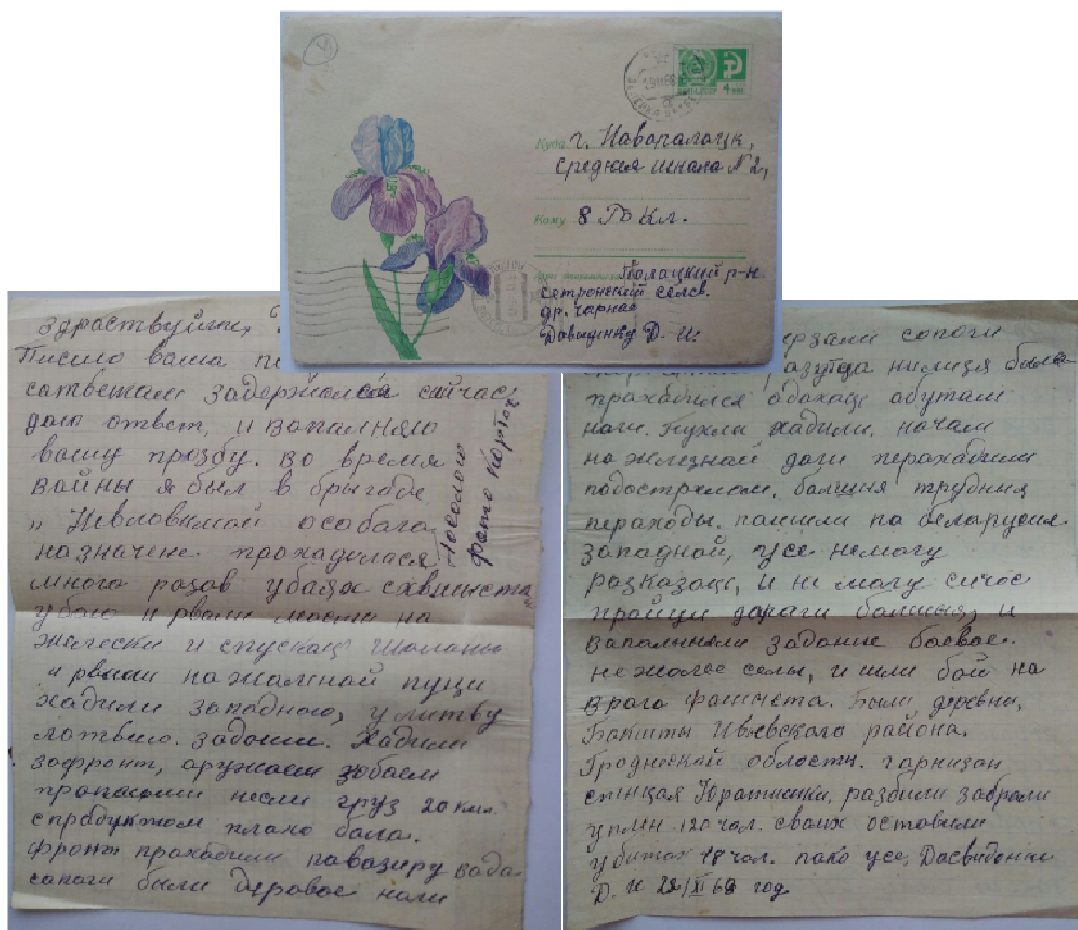 4 коп
Куда г. Наваполоцк,
средняя школа №2,
Кому 8 "Б" кл.
Полацкий р-н.
сельсв.
др. Чарная
Давиденку Д. И.
здраствуйти,
Писмо ваша
сатветам задержался сичас
даю ответ, и вапалняю
вашу прозбу. во время
войны я был в брыгаде
„Невловимой особаго
назначене. прохадилася
много разав убаях сфашиста
убою и рвали масты на
желески и спускац
и рвали на жалнай пуци
хадили западною, у литву
задании. хадили
зафронт, аружаем
несли груз 20 килл.
спрадуктом плахо бала.
фронт прахадили павазиру вада
сапоги были дуровые наги
Посолаю
фато карточ
ерзали сапоги
разуцца нилизя была
прахадился абутам
наги. Пухли хадили, начам
на жилезнай даги перахадили
падострелам, балшия трудныя
перахады. пашли па беларусия
западнай, усе немогу
разказац, и ни могу сичас
прайшли дароги балшия, и
вапалняли задание боевое.
не жалее селы, и шли бой на
врага фашиста. Были, деревни,
Бакшты Ивьевскаго района.
Гродненской области. гарнизан
станцая Юратишки, разбили забрали
у плен. 120 чел. своих оставили
убитах 18 чал. пако усе, Досвидония
Д. И 28/XI 69 год